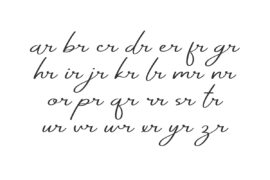 ar br cr dr er fr gr
hr ir jr kr lr mr nr
or pr qr rr sr tr
ur vr wr xr yr zr